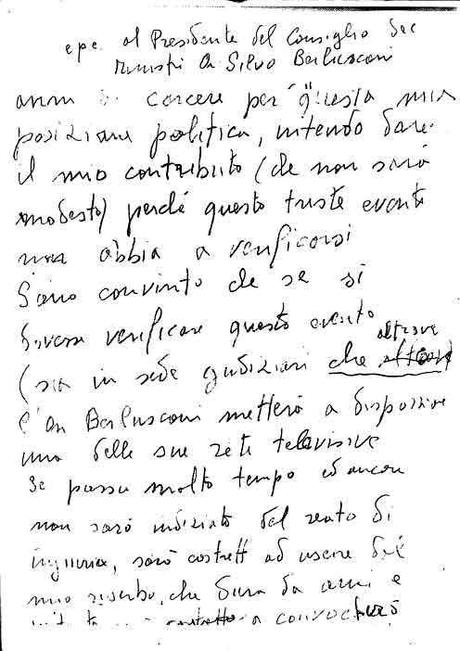 e p.c. al Presidente del Consiglio dei
Ministri On Silvio Berlusconi
anni di carcere per questa mia
posizione politica, intendo dare
il mio contributo (che non sarà
modesto) perché questo triste evento
non abbia a verificarsi
Sono convinto che se si
dovesse verificare questo evento
(sia in sede giudiziari che altrove
l'On Berlusconi metterà a disposizione
una delle sue reti televisive
Se passa molto tempo ed ancora
non sarò indiziato del reato di
ingiuria, sarò costrett ad uscire dal
mio riserbo che dura da anni e
a convoc